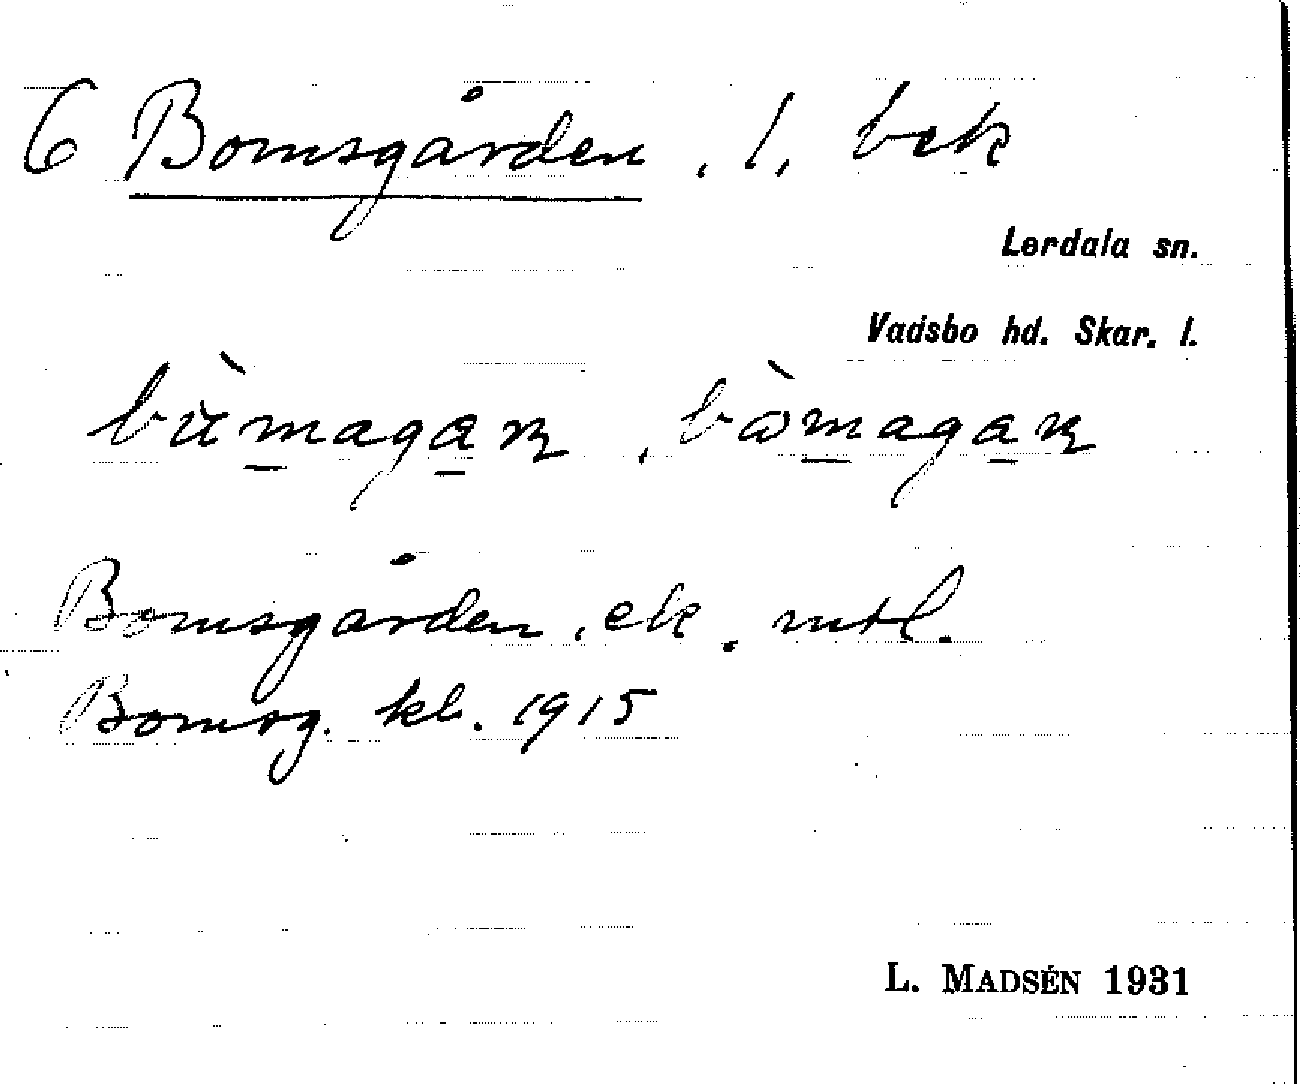 6 Bomsgården, 1, bek
Lerdala sn.
Vadsbo hd. Skar. l.
Bomsgården, ek. mtl.
Bomsg. kb. 1915
L. MADSÉN 1931